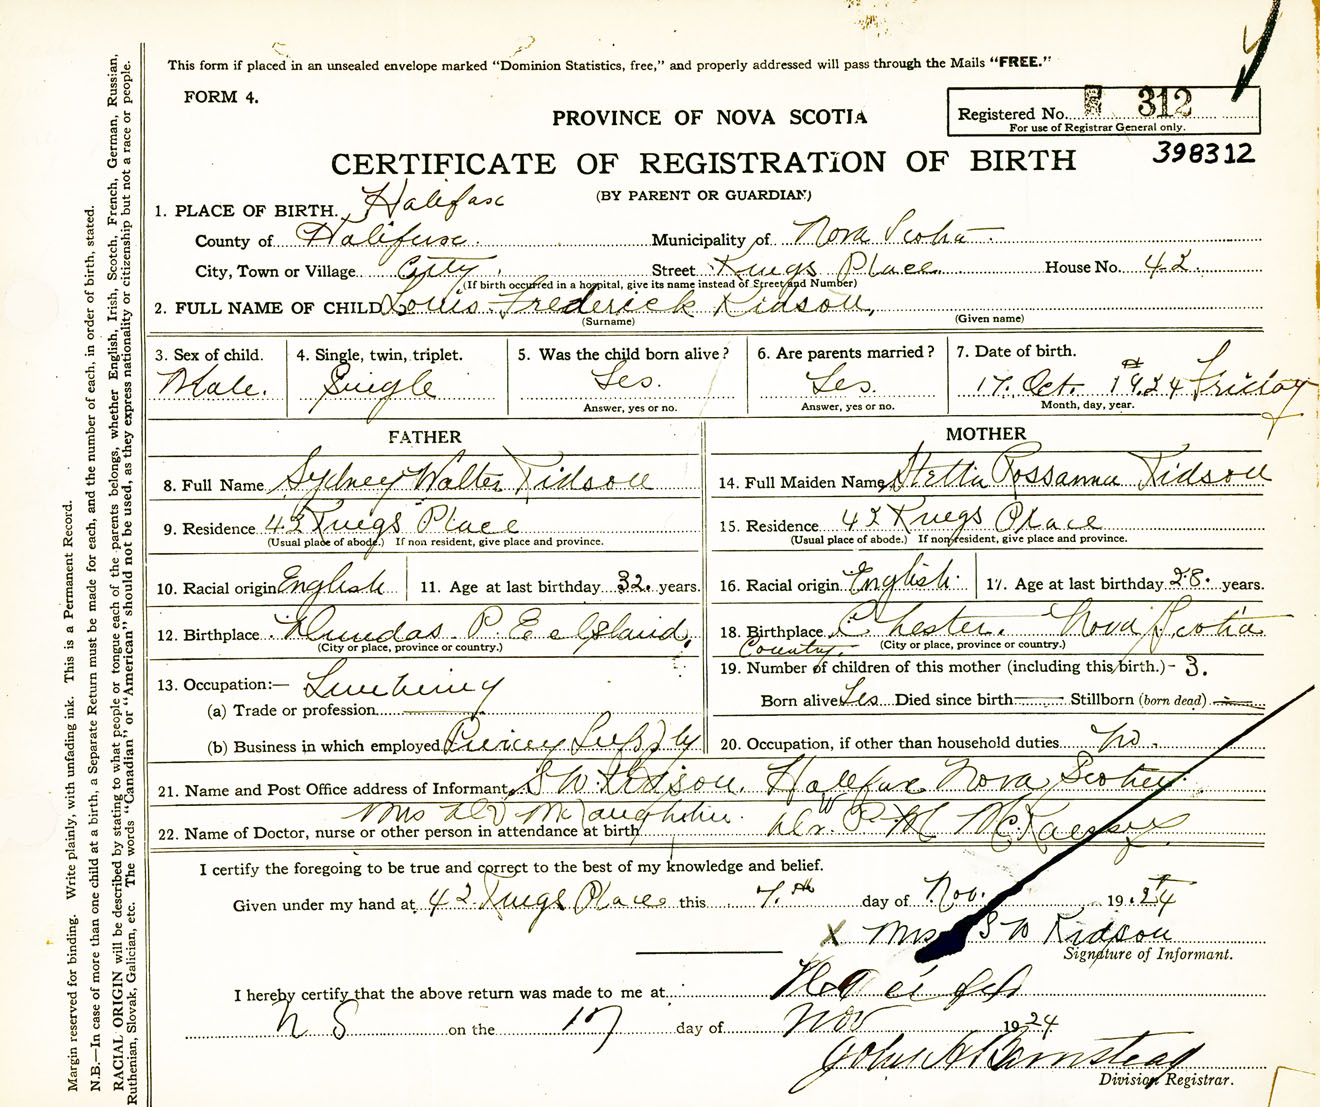 This form if placed in an unsealed envelope marked “Dominion Statistics, free,” and properly addressed will pass through the Mails “FREE.”
FORM 4.
PROVINCE OF NOVA SCOTIA
Registered No. 312
For use of Registrar General only.
CERTIFICATE OF REGISTRATION OF BIRTH
398312
(BY PARENT OR GUARDIAN)
1. PLACE OF BIRTH. Halifax
County of Halifax. Municipality of Nova Scotia
City, Town or Village City. Street Kings Place House No. 42.
(If birth occurred in a hospital, give its name instead of Street and Number)
2. FULL NAME OF CHILD Louis Frederick Kidson,
(Surname) (Given name)
3. Sex of child. 4. Single, twin, triplet. 5. Was the child born alive? 6. Are parents married? 7. Date of birth.
Male. Single Yes. Yes. 17. Oct. 1924 Friday
Answer, yes or no. Answer, yes or no. Month, day, year.
FATHER
8. Full Name Sydney Walter Kidson
9. Residence 42 Kings Place
(Usual place of abode.) If non resident, give place and province.
10. Racial origin English 11. Age at last birthday 32. years.
12. Birthplace Dundas P. E. Island,
(City or place, province or country.)
13. Occupation:—
(a) Trade or profession
(b) Business in which employed Supply
MOTHER
14. Full Maiden Name Stella Rossanna Kidson
15. Residence 42 Kings Place
(Usual place of abode.) If non resident, give place and province.
16. Racial origin English. 17. Age at last birthday 28. years.
18. Birthplace Chester. Nova Scotia
County. (City or place, province or country.)
19. Number of children of this mother (including this birth.) - 3.
Born alive Yes Died since birth Stillborn (born dead)
20. Occupation, if other than household duties No.
21. Name and Post Office address of Informant S W Kidson. Halifax Nova Scotia
Mrs McLaughlin.
22. Name of Doctor, nurse or other person in attendance at birth Dr.
I certify the foregoing to be true and correct to the best of my knowledge and belief.
Given under my hand at 42 Kings Place this 7.th day of Nov. 1924
X Mrs S W Kidson
Signature of Informant.
I hereby certify that the above return was made to me at Halifax
N S on the 17 day of Nov 1924
John
Division Registrar.
Margin reserved for binding. Write plainly, with unfading ink. This is a Permanent Record.
N.B.—In case of more than one child at a birth, a Separate Return must be made for each, and the number of each, in order of birth, stated.
RACIAL ORIGIN will be described by stating to what people or tongue each of the parents belongs, whether English, Irish, Scotch, French, German, Russian,
Ruthenian, Slovak, Galician, etc. The words “Canadian” or “American” should not be used, as they express nationality or citizenship but not a race or people.